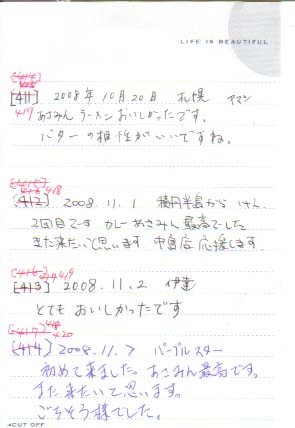 LIFE IS BEAUTIFUL
[414]
[411] 2008年10月20日 札幌 ヤマン
417 あさみんラーメンおいしかったです。
バターの相性がいいですね。
[415]
418
[412] 2008.11.1 積丹半島から けん
2回目です カレーあさみん最高でした
また来たいと思います 中島店 応援します
[416] 419
[413] 2008.11.2 伊達
とてもおいしかったです
[417]
420
[414] 2008.11.7 パープルスター
初めて来ました。あさみん最高です。
また来たいて思います。
ごちそう様でした。
CUT OFF